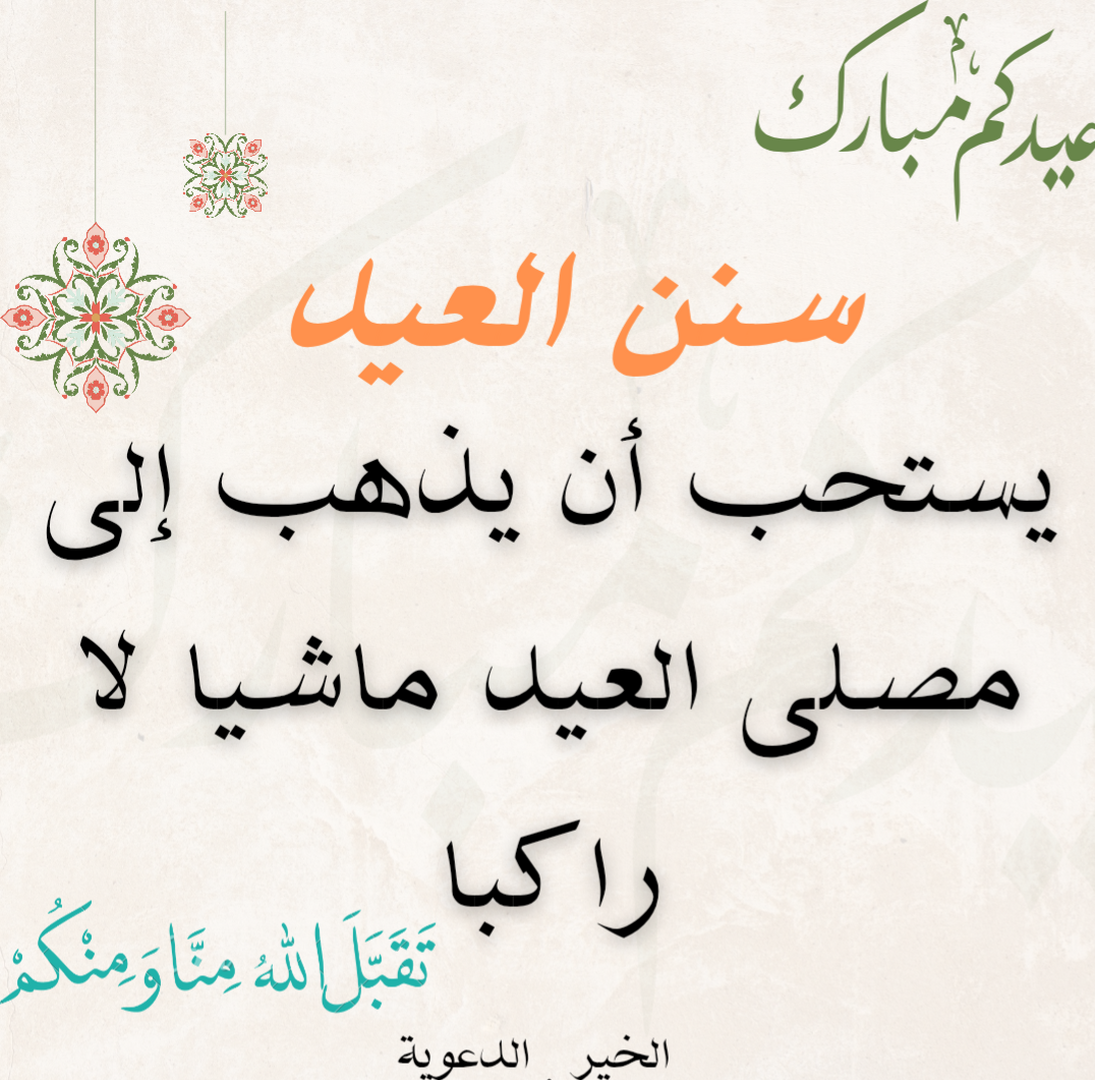 عيدكم مبارك
سنن العيد
يستحب أن يذهب إلى
مصلى العيد ماشيا لا
راكبا
تَقَبَّلَ اللهُ مِنَّا وَمِنْكُمْ
الخير الدعوية